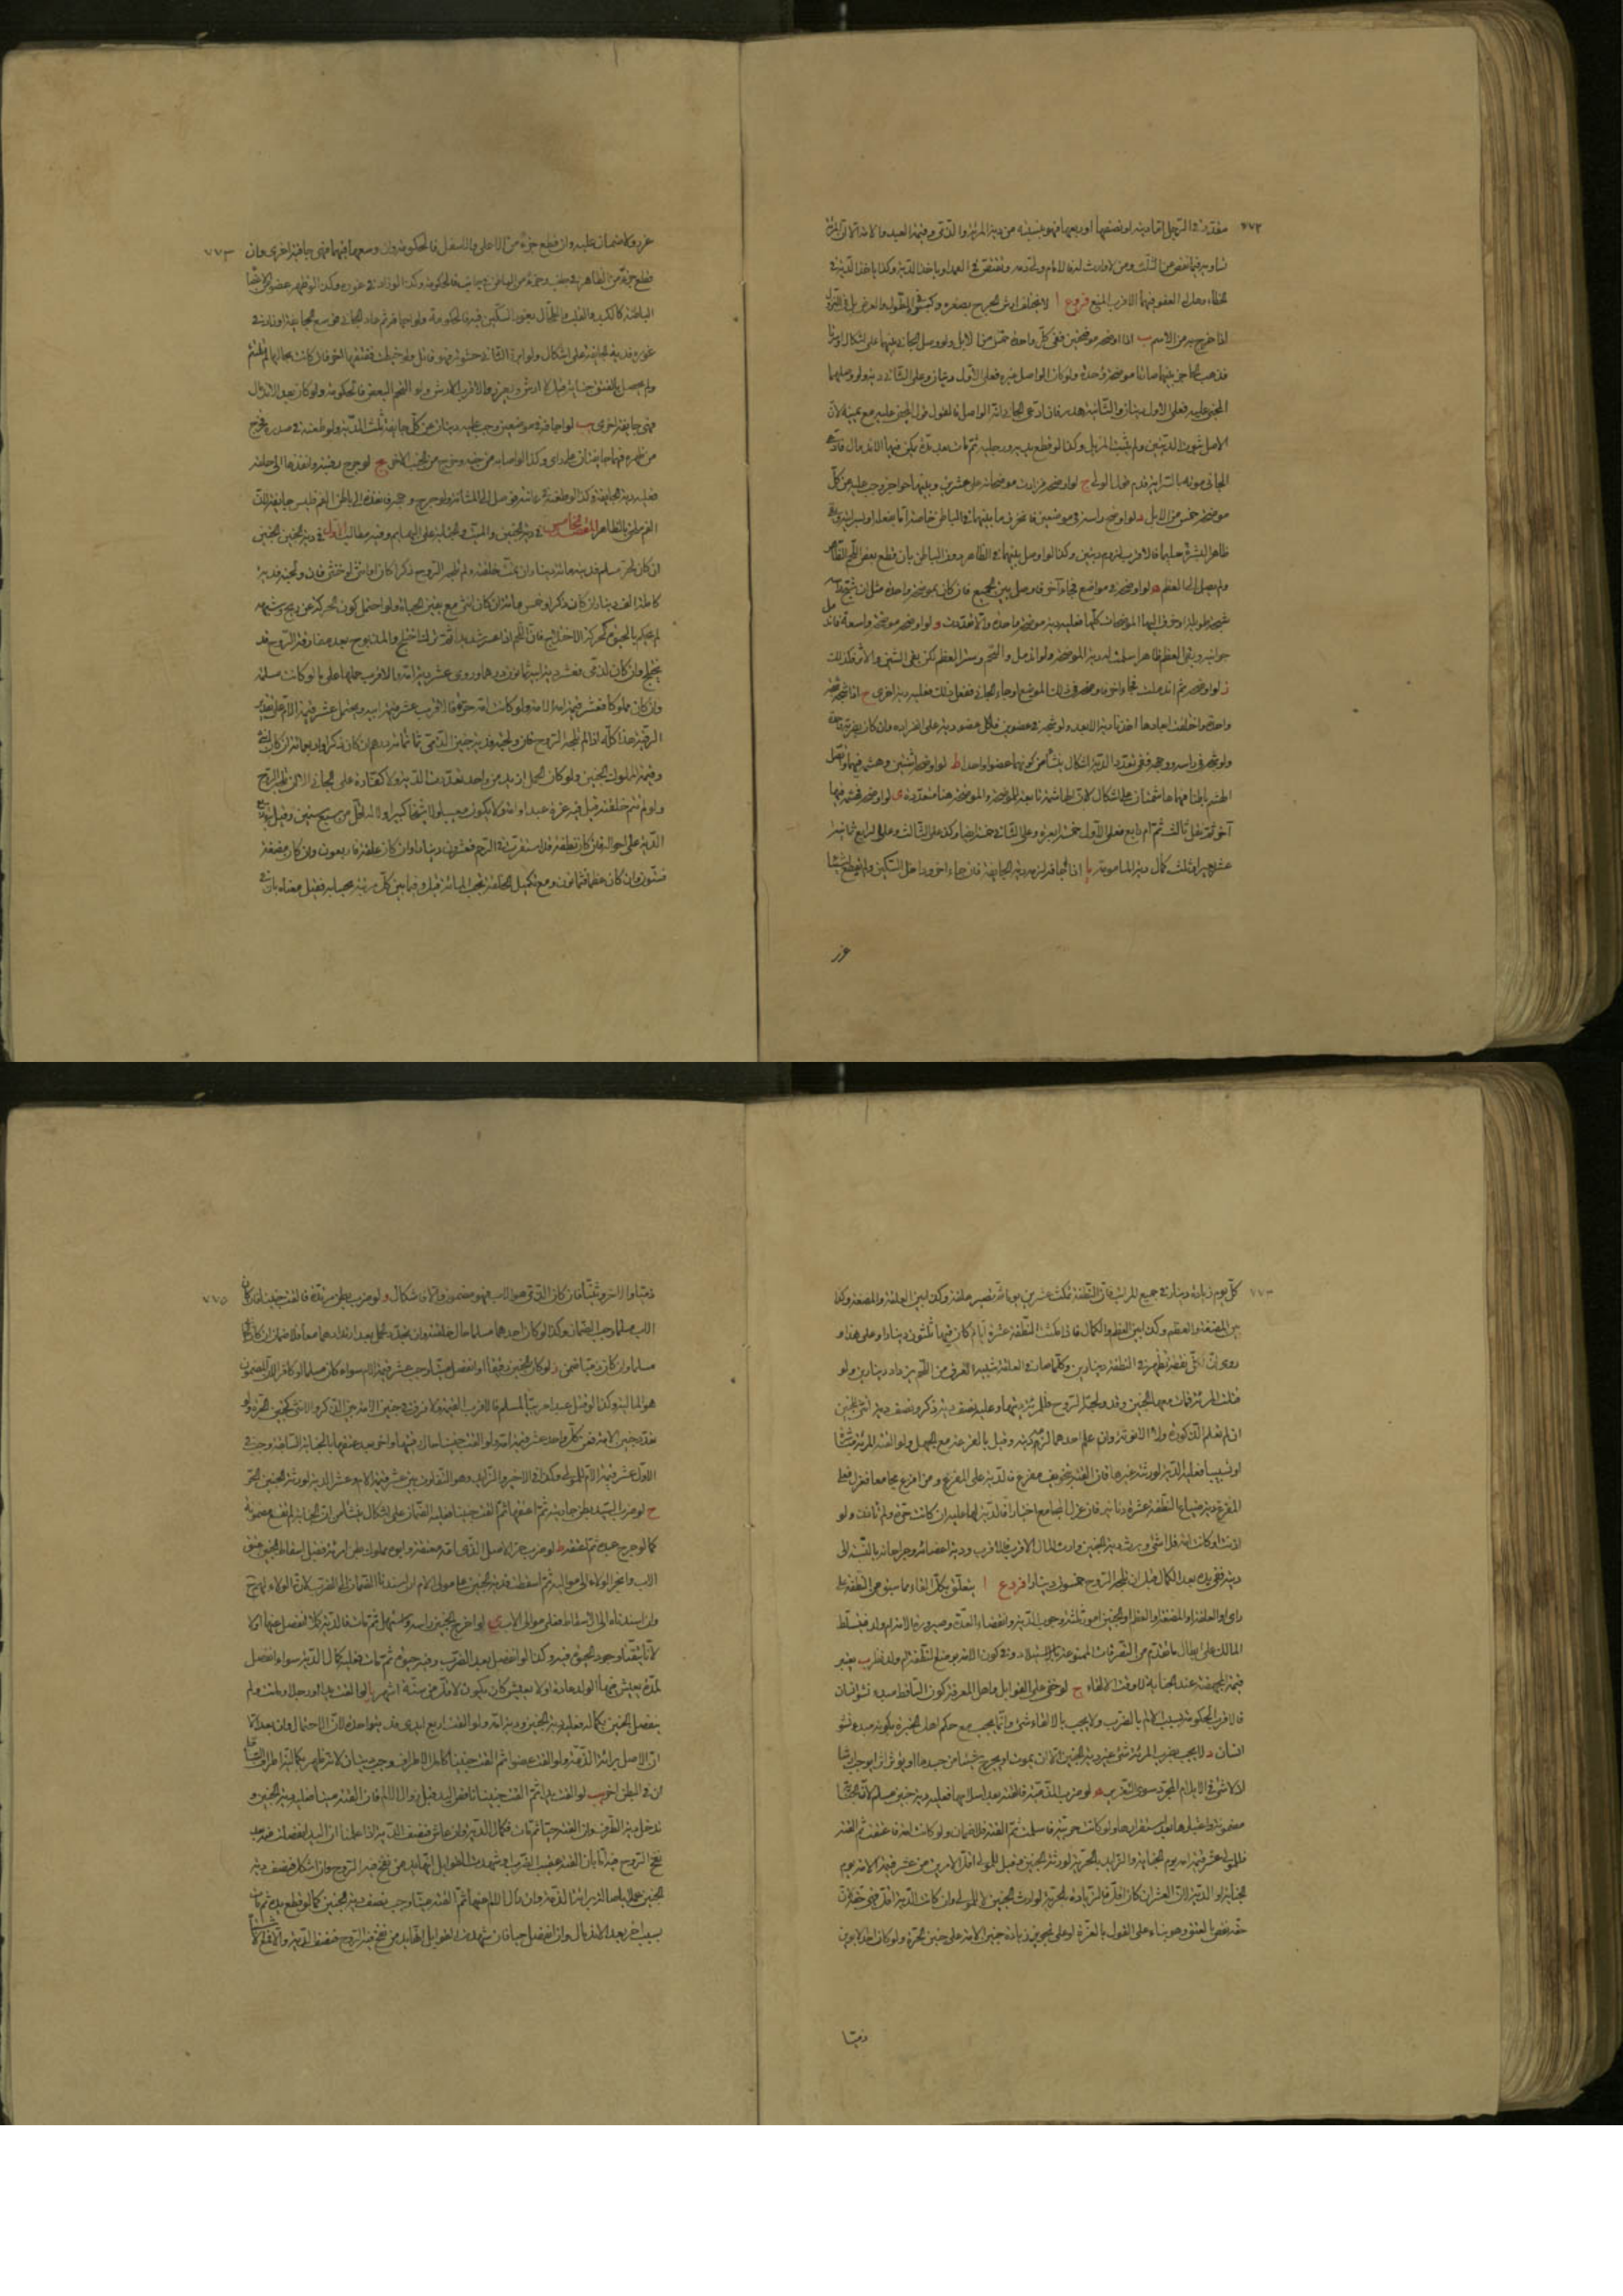 ٧٧٢
مقدرة في الرجل اما دية او نصفها او ربعها فهو بنسبته من دية المرئة والذمي وقيمة العبد والامة الا ان المرئة
تساويه فيما نقص عن الثلث ومن لا وارث له فالامام ولي دمه ويقتص في العمد او ياخذ الدية وكذا ياخذ الدية في
الخطاء وهل له العفو فيهما الاقرب المنع فروع ا لا يختلف ارش الجرح بصغره وكبره في الطول والعرض بل في النزول
اذا خرج به عن الاسم ب اذا اوضحه موضحتين ففي كل واحدة خمس من الابل ولو وصل الجاني بينهما على اشكال او سرتا
فذهب الحاجز بينهما صارتا موضحة واحدة ولو كان الواصل غيره فعلى الاول ديتان وعلى الثاني دية ولو وصلهما
المجني عليه فعلى الاول ديتان والثالثة هدر فان ادعى الجاني انه الواصل فالقول قول المجني عليه مع يمينه لان
الاصل ثبوت الديتين ولم يثبت المزيل وكذا لو قطع يديه ورجليه ثم مات بعد مدة يمكن فيها الاندمال فادعى
الجاني موته بالسراية قدم قول الولي ج لو اوضحه فزادت موضحاته على عشرين وبينهما حواجز وجب عليه عن كل
موضحة خمس من الابل د لو اوضح راسه في موضعين فانخرق ما بينهما في الباطن خاصة اما بفعله او بسرايته وبقي
ظاهر البشرة سليما فالاقرب لزوم ديتين وكذا لو وصل بينهما في الظاهر دون الباطن بان قطع بعض اللحم الظاهر
ولم يصل الى العظم ه لو اوضحه في مواضع فجاء اخر فاوصل بين الجميع فان كان بموضحة واحدة مثل ان شجه
شجة طويلة اوضح اليها الموضحات كلها فعليه دية موضحة واحدة والا تعددت و لو اوضحه موضحة واسعة فاندمل
جوانبه وبقي العظم ظاهرا سلمت له دية الموضحة ولو اندمل والتحم وستر العظم لكن بقي الشين والاثر فكذلك
ز لو اوضحه ثم اندملت فجاء اخر فاوضحه في ذلك الموضع او جاء الجاني ففعل ذلك فعليه دية اخرى ح اذا شجه شجة
واحدة واختلفت ابعادها اخذنا دية الابعد ولو شجه في عضوين فلكل عضو دية على انفراده وان كان بضربة واحدة
ولو شجه في راسه ووجهه ففي تعدد الدية اشكال ينشأ من كونهما عضوا واحدا ط لو اوضحه اثنتين وهشمه فيهما واتصل
الهشم باطنا فهما هاشمتان على اشكال لان الهاشمة تابعة للموضحة والموضحة هنا متعددة ى لو اوضحه فهشمه فيها
اخر ثم نقل ثالث ثم ام رابع فعلى الاول خمسة ابعرة وعلى الثاني خمسة ايضا وكذا على الثالث وعلى الرابع ثمانية
عشر بعيرا وثلث كمال دية المامومة يا اذا اجافه لزمه دية الجايفة فان جاء اخر وداخل السكين ولم يقطع شيئا
عزر
٧٧٣
عزر ولا ضمان عليه وان قطع جزءا من الاعلى والاسفل فالحكومة وان وسعها فيهما فهي جايفة اخرى وان
قطع جزءا من الظاهر في جانب وجزءا من الباطن في جانب فالحكومة وكذا لو زاد في غوره وكذا لو ظهر عضو من الاعضا
الباطنة كالكبد والقلب والطحال بغرز السكين فيه فالحكومة ولو اجافه ثم عاد الجاني فوسع الجايفة او زاد في
غوره فدية الجايفة على اشكال ولو ابرز الثاني حشوته فهو قاتل ولو خيطت ففتقها اخر فان كانت بحالها لم تلتئم
ولم يحصل بالفتق جناية قيل لا ارش ويعزر والاقرب الارش ولو التحم البعض فالحكومة ولو كان بعد الاندمال
فهي جايفة اخرى يب لو اجافه في موضعين وجب عليه ديتان عن كل جايفة ثلث الدية ولو طعنه في صدره فخرج
من ظهره فهما جايفتان على راى وكذا لو اصابه من جنبه وخرج من الجنب الاخر يج لو جرح رقبته وانفذها الى حلقه
فعليه دية الجايفة وكذا لو طعنه في عانته فوصل الى المثانة ولو جرح وجهه فانفذه الى باطن الفم فليس جايفة لان
الفم ملحق بالظاهر المقصد الخامس في دية الجنين والميت والجناية على البهايم وفيه مطالب الاول في دية الجنين الجنين
ان كان بحر مسلم فديته مائة دينار ان تمت خلقته ولم تلجه الروح ذكرا كان او انثى او خنثى فان ولجته فدية
كاملة الف دينار ان كان ذكرا وخمس مائة ان كان انثى مع يقين الحيوة ولو احتمل كون الحركة عن ريح وشبهه
لم يحكم بالحيوة كحركة الاختلاج فان اللحم اذا عصر شديدا ثم ترك اختلج والمذبوح بعد مفارقة الروح قد
يختلج وان كان لذمي فعشر دية ابيه ثمانون درهما وروى عشر دية امه والاقرب حملها على ما لو كانت مسلمة
وان كان مملوكا فعشر قيمة امه الامة ولو كانت امه حرة فالاقرب عشر قيمة ابيه ويحتمل عشر قيمة الام على تقدير
الرقية هذا كله اذا لم تلجه الروح فان ولجته فدية جنين الذمي ثمانمائة درهم ان كان ذكرا واربعمائة ان كان انثى
وقيمة المملوك الجنين ولو كان الحمل ازيد من واحد تعددت الدية ولا كفارة على الجاني الا ان تلجه الروح
ولو لم تتم خلقته قيل فيه غرة عبد او امة ولا يكون معيبا ولا شيخا كبيرا ولا له اقل من سبع سنين وقيل بتوزيع
الدية على احواله فان كان نطفة قد استقرت في الرحم فعشرون دينارا وان كان علقة فاربعون وان كان مضغة
فستون وان كان عظما فثمانون ومع تكميل الخلقة تجب المائة قيل وفيما بين كل مرتبة بحسابه فقيل معناه بان في
كل يوم زيادة دينار في جميع المراتب فان النطفة تمكث عشرين يوما ثم تصير علقة وكذا بين العلقة والمضغة وكذا
بين المضغة والعظم وكذا بين العظم والكمال فاذا مكثت النطفة عشرة ايام كان فيها ثلثون دينارا وعلى هذا و
روى ان لكل نقطة تظهر في النطفة دينارين وكلما صار في العلقة شبيه العرق من اللحم يزداد دينارين ولو
قتلت المرئة فمات معها الجنين وقد ولجته الروح فللمرئة ديتها وعليه نصف دية ذكر ونصف دية انثى للجنين
ان لم تعلم الذكورة ولا الانوثة وان علم احدهما لزم ديته وقيل بالقرعة مع الجهل ولو القته المرئة مباشرة
او تسبيبا فعليها الدية لورثته غيرها فان القته بتخويف مفزع فالدية على المفزع ومن افزع مجامعا فعزل فعلى
المفزع دية ضياع النطفة عشرة دنانير فان عزل المجامع اختيارا فالدية لها عليه ان كانت حرة ولم تاذن ولو
اذنت او كانت امة فلا شئ ويرث دية الجنين وارث المال الاقرب فالاقرب ودية اعضائه وجراحاته بالنسبة الى
ديته ففي يده بعد الكمال قبل ان تلجه الروح خمسون دينارا فروع ا يتعلق بكل القاء مما سبق من النطفة على
راى والعلقة او المضغة او العظم او الجنين امور ثلثة وجوب الدية وانقضاء العدة وصيرورة الامة ام ولد فيتسلط
المالك على ابطال ما تقدم من التصرفات الممنوعة بالاستيلاد وفي كون الامة بوضع النطفة ام ولد نظر ب يعتبر
قيمة المجهضة عند الجناية لا وقت الالقاء ج لو خفي على القوابل واهل المعرفة كون الساقط مبدء نشوء انسان
فالاقرب الحكومة بسبب الالم بالضرب ولا يجب بالالقاء شئ وانما يجب مع حكم اهل الخبرة بكونه مبدء نشوء
انسان د لا يجب بضرب المرئة شئ غير دية الجنين الا ان يموت او يجرح شيئا من جسدها او يؤثر اثرا يوجب ارشا
اذ لا شئ في الايلام المجرد سوى التعزير ه لو ضرب الذمية فالقته بعد اسلامها فعليه دية جنين مسلم لان الجناية
مضمونة والاعتبار بها بعد استقرارها ولو كانت حربية فاسلمت ثم القته فلا ضمان ولو كانت امة فاعتقت ثم القته
فللمولى عشر قيمة امه يوم الجناية والزايد بالحرية لورثة الجنين وقيل للمولى اقل الامرين من عشر قيمة الامة يوم
الجناية او الدية لان العشر ان كان اقل فالزيادة بالحرية لوارث الجنين لا للمولى وان كانت الدية اقل فهي حقه لان
حقه نقص بالعتق وهو بناء على القول بالغرة او على تجويز زيادة جنين الامة على جنين الحرة ولو كان احد الابوين
ذميا
٧٧٥
ذميا والاخر وثنيا فان كان الذمي هو الاب فهو مضمون والا فاشكال و لو ضرب بطن مرتدة فالقت جنينا فان كان
الاب مسلما وجب الضمان وكذا لو كان احدهما مسلما حال خلقته وان تجدد الحمل بعد ارتدادهما معا فلا ضمان ان كان
مسلما وان كان ذميا ضمن ز لو كان الجنين رقيقا وانفصل ميتا وجب عشر قيمة الام سواء كان مسلما او كافرا لان المضمون
هو المالية وكذا لو قتل عبدا حربيا لمسلم فالاقرب القيمة ولا فرق في جنين الامة بين الذكر والانثى كجنين الحرة ولو
تعدد جنين الامة ففي كل واحد عشر قيمة امه ولو القت جنينا حال رقها واخر بعد عتقها بالجناية السابقة وجب في
الاول عشر قيمة الام للمولى وكذا في الاخر والزايد وهو التفاوت بين عشر قيمة الام وعشر الدية لورثة الجنين الحر
ح لو ضرب السيد بطن جاريته ثم اعتقها ثم القت جنينا فعليه الضمان على اشكال ينشأ من ان الجناية لم تقع مضمونة
كما لو جرح عبده ثم اعتقه ط لو ضرب حر الاصل الذي امه معتقة وابوه مملوك بطن امرئة فقبل اسقاط الجنين عتق
الاب وانجر الولاء الى مواليه ثم اسقطت فدية الجنين على مولى الام ان اسندنا الضمان الى الضرب لان الولاء لم ينجر
وان اسندناه الى الاسقاط فعلى موالى الاب ى لو اخرج الجنين راسه واستهل ثم مات فالدية كاملة انفصل عنها ام لا
لانا تيقنا وجود الحيوة فيه وكذا لو انفصل بعد الضرب وفيه حيوة ثم مات فعليه كمال الدية سواء انفصل
لمدة يعيش فيها الولد عادة او لا يعيش كان يكون لاقل من ستة اشهر يا لو القت يدا او رجلا وماتت ولم
ينفصل الجنين بكماله فعليه دية الجنين ودية امه ولو القت اربع ايدى فدية واحدة لان الاحتمال وان بعد الا
ان الاصل براءة الذمة ولو القت عضوا ثم القت جنينا كامل الاطراف وجب ديتان لانه ظهر بكمال اطراف
ان في البطن اخر يب لو القت يدا ثم القت جنينا ناقص اليد قبل زوال الالم فان القته ميتا فعليه دية الجنين و
تدخل دية الطرف وان القته حيا ثم مات فكمال الدية وان عاش فنصف الدية اذا علمنا ان اليد انفصلت منه بعد
نفخ الروح فيه اما بان القته عقيب الضرب او شهدت القوابل انها يد من نفخ فيه الروح وان اشكل فنصف دية
الجنين عملا باصالة براءة الذمة وان زال الالم عنها ثم القته ميتا وجب نصف دية الجنين كما لو قطع يده ثم مات
بسبب اخر بعد الاندمال وان انفصل حيا فان شهدت القوابل انها يد من نفخ فيه الروح فنصف الدية والا فنصف